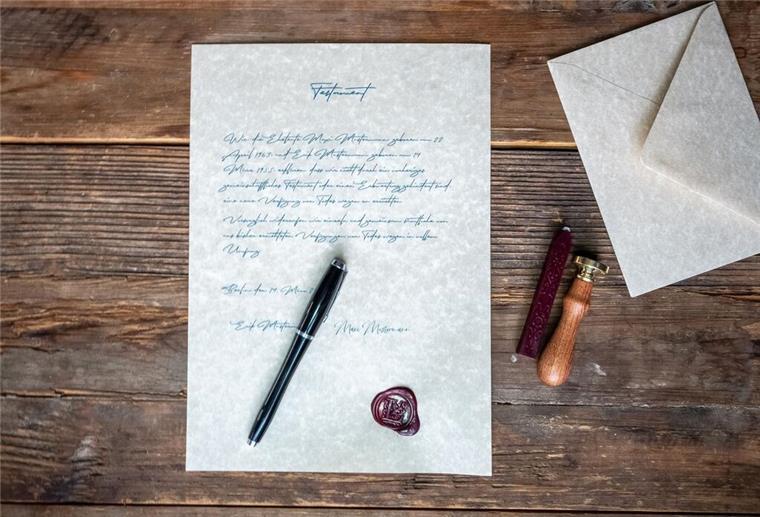 Testament
Wir, die Eheleute Maxi Mustermann geboren am 22
April 1963 und Erik Mustermann geboren am 14
März 1955 erklären, dass wir nicht durch ein vorheriges
gemeinschaftliches Testament oder einen Erbvertrag gehindert sind,
eine neue Verfügung von Todes wegen zu errichten.
Vorsorglich widerrufen wir einzeln und gemeinsam von
uns bisher errichteten Verfügungen von Todes wegen in vollem
Umfang
Berlin den 14. März
Erik Maxi Mustermann